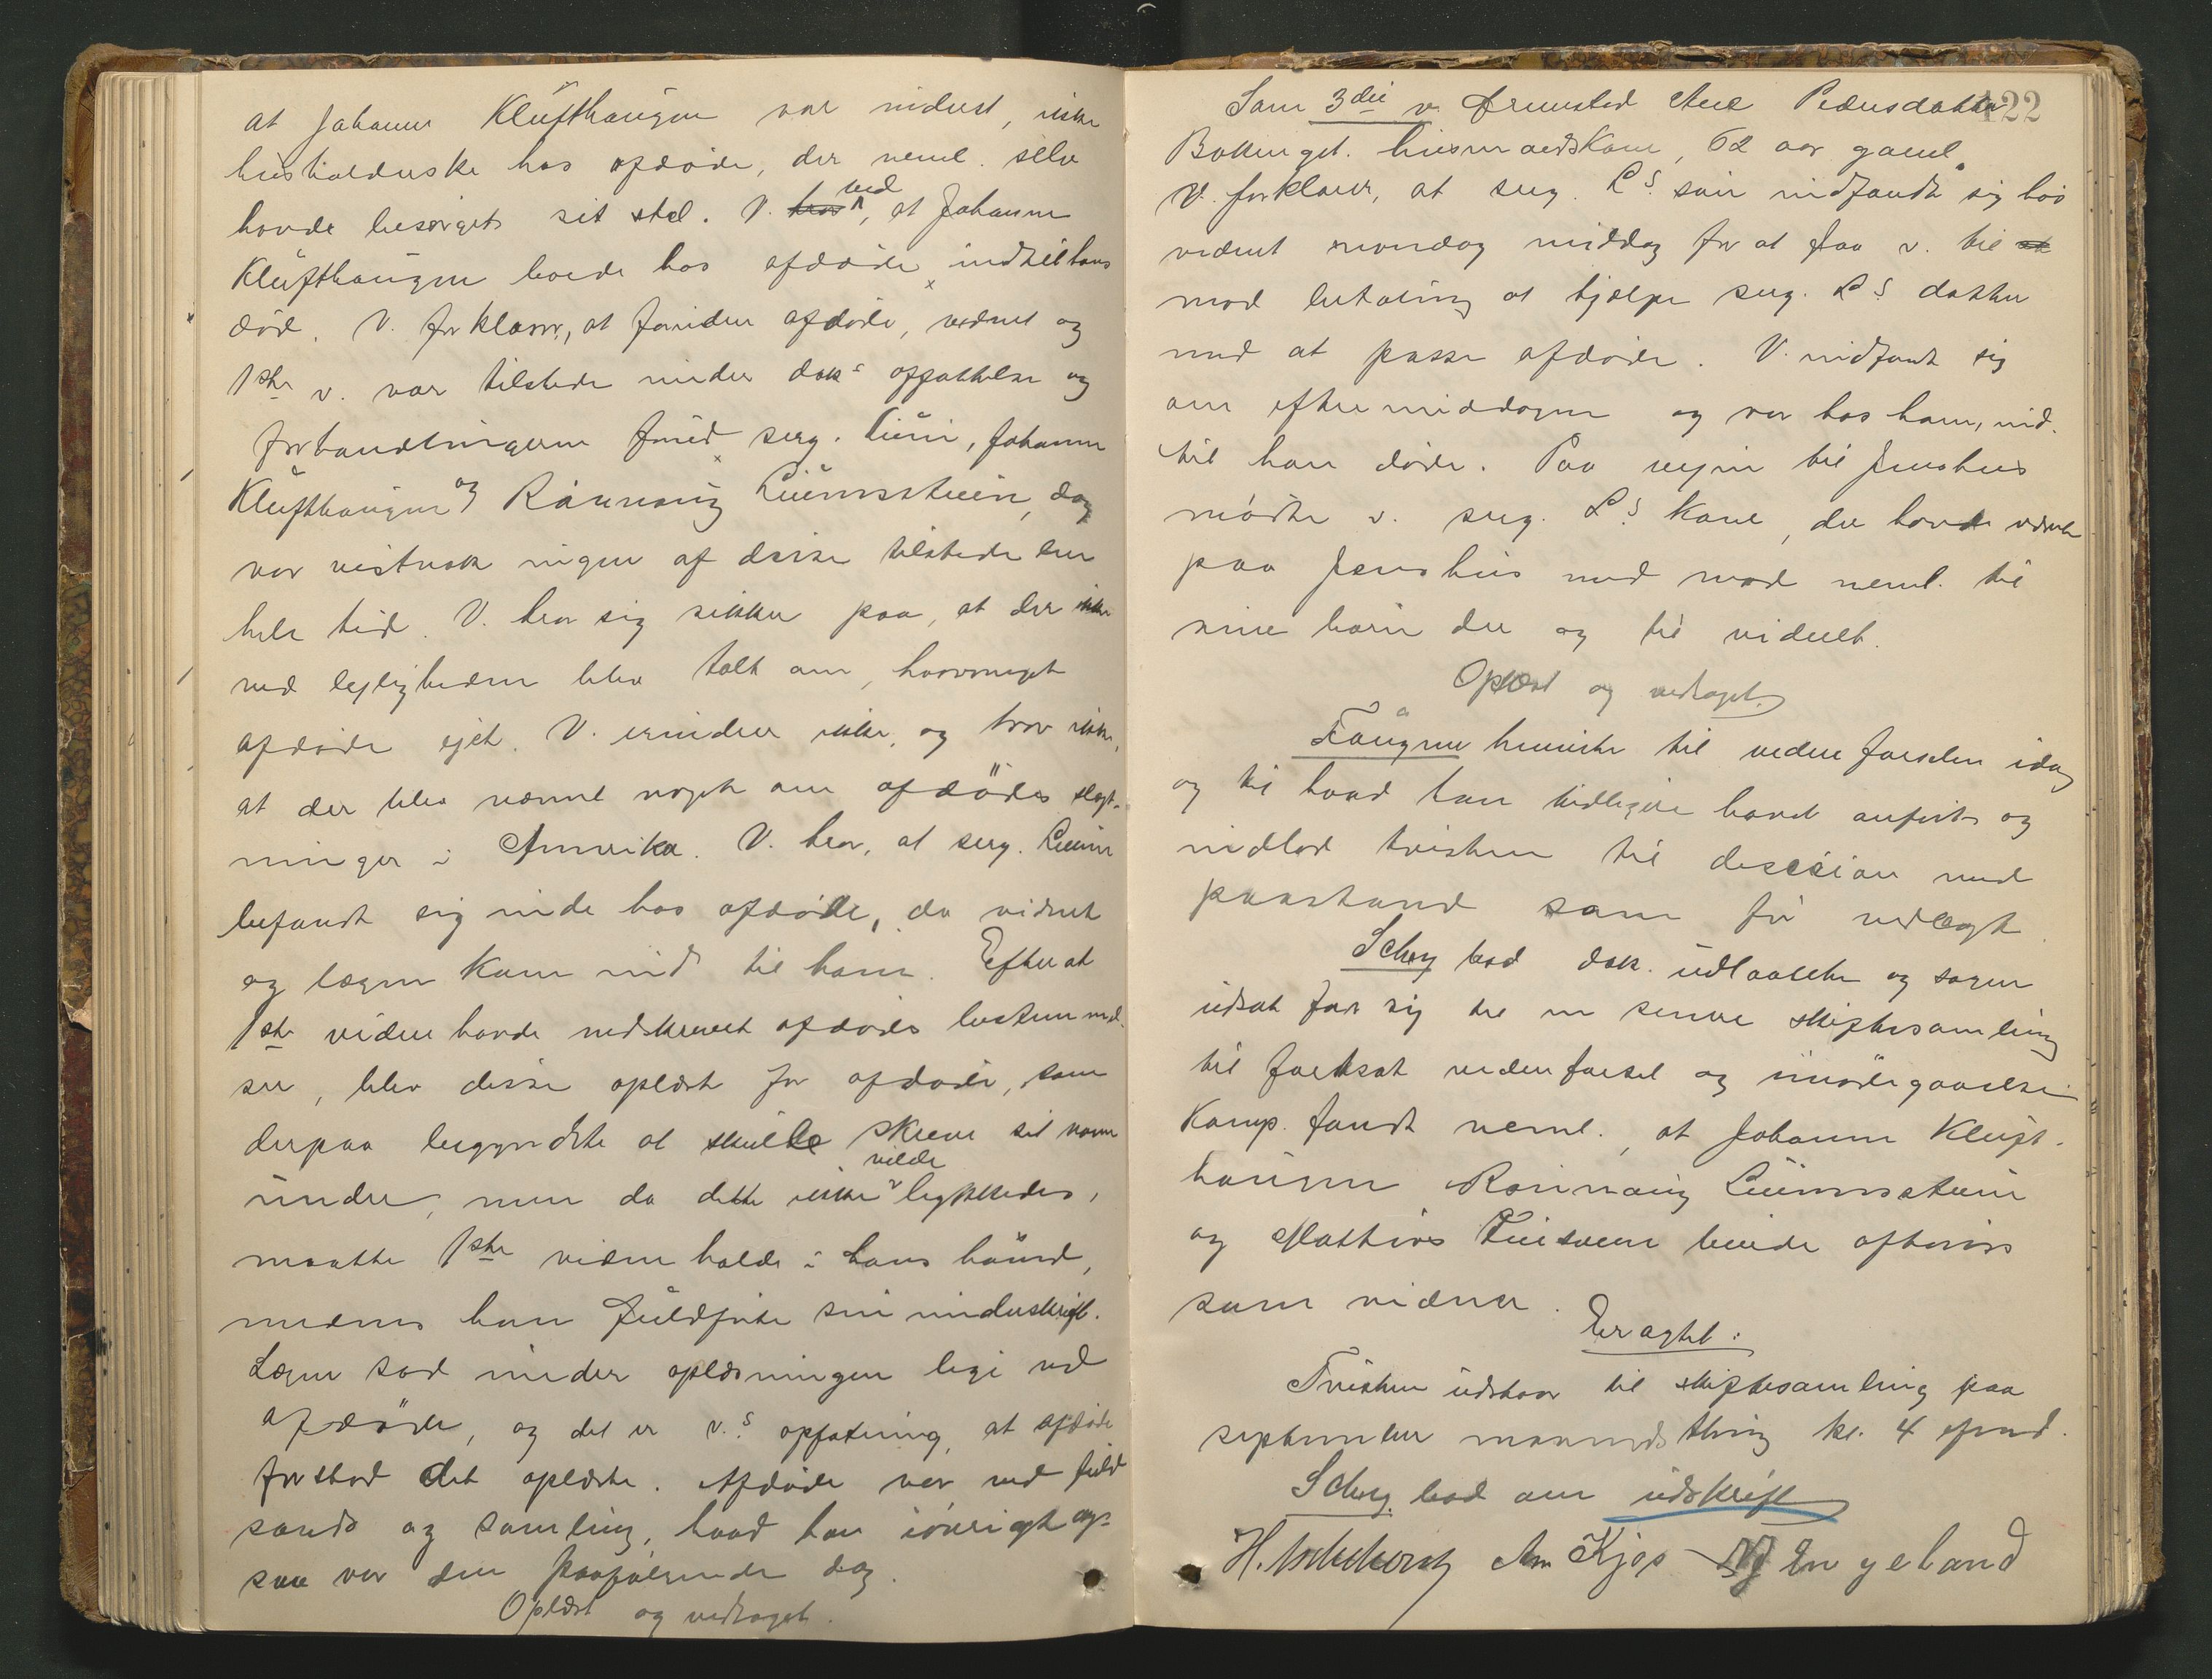 at Johanne Klüfthaugen var indust, ikke
husholderske hos afdøde, der neml. selv
havde besørget sit stel. V. tror ved, at Johanne
Klüfthaugen boede hos afdøde indtil hans
død. V. forklarer, at foruden afdøde, vidnet og
1ste v. var tilstede under dok.s opfattelse og
forhandlingerne foruд serg. Lunn, Johanne
Klüfthaugen og Rannaug Luünsstuen, dog
var vistnok ingen af disse tilstede den
hele tid. V. tror sig sikker paa, at der ikke
ved lejligheden blev talt om, hvormeget
afdøde ejet. V. erindrer ikke, og tror ikke,
at der blev nævnt noget om afdødes slægt-
ninger i Amerika. V. tror, at serg. Lunn
befandt sig inde hos afdøde, da vidnet
og lægen kom ind til ham. Efterat
1ste vidne havde nedskrevet afdødes bestemmel-
ser, blev disse oplæst for afdøde, som
derpaa begyndte at skulle skrive sit navn
under, men da dette ikke vilde lykkedes,
maatte 1ste vidne holde i hans haand,
medens han fuldførte sin underskrift.
Lægen sad under oplæsningen lige ved
afdøde, og det er v.s opfatning, at afdøde
forstod det oplæste. Afdøde var ved fuld
sands og samling, hvad han iøvrigt og-
saa var den paafølgende dag.
Oplæst og vedtaget.
122
Som 3die v. fremstod Ane Pedersdatter
Bakkenget. husmandskone, 62 aar gammel.
V. forklarer, at serg. L.s søn indfandt sig hos
vidnet mandag middag for at faa v. til at
mod betaling at hjælpe serg. L.s datter
med at passe afdøde. V. indfandt sig
om eftermiddagen og var hos ham, ind-
til han døde. Paa vejen til Jenshus
mødte v. serg. L.s kone, der havde været
paa Jenshus med mad neml. til
sine børn der og til vidnet.
Oplæst og vedtaget.
Faugner henviste til vidneførselen idag
og til hvad han tidligere havde anført og
indlod tvisten til decision med
paastand som før nedlagt.
Schøy bad dok. udlaante og sagen
udsat for sig til en senere skiftesamling
til fortsat vidneførsel og imødegaaelse
Komp. fandt neml., at Johanne Klüft-
haugen Rønnaug Luünsstuen
og Mathias burde afhøres
som vidner.
Eragtet:
Tvisten udstaar til skiftesamling paa
september maanedsthing kl. 4 efmd.
Schøy bad om udskrift
Am Kjos Engeland